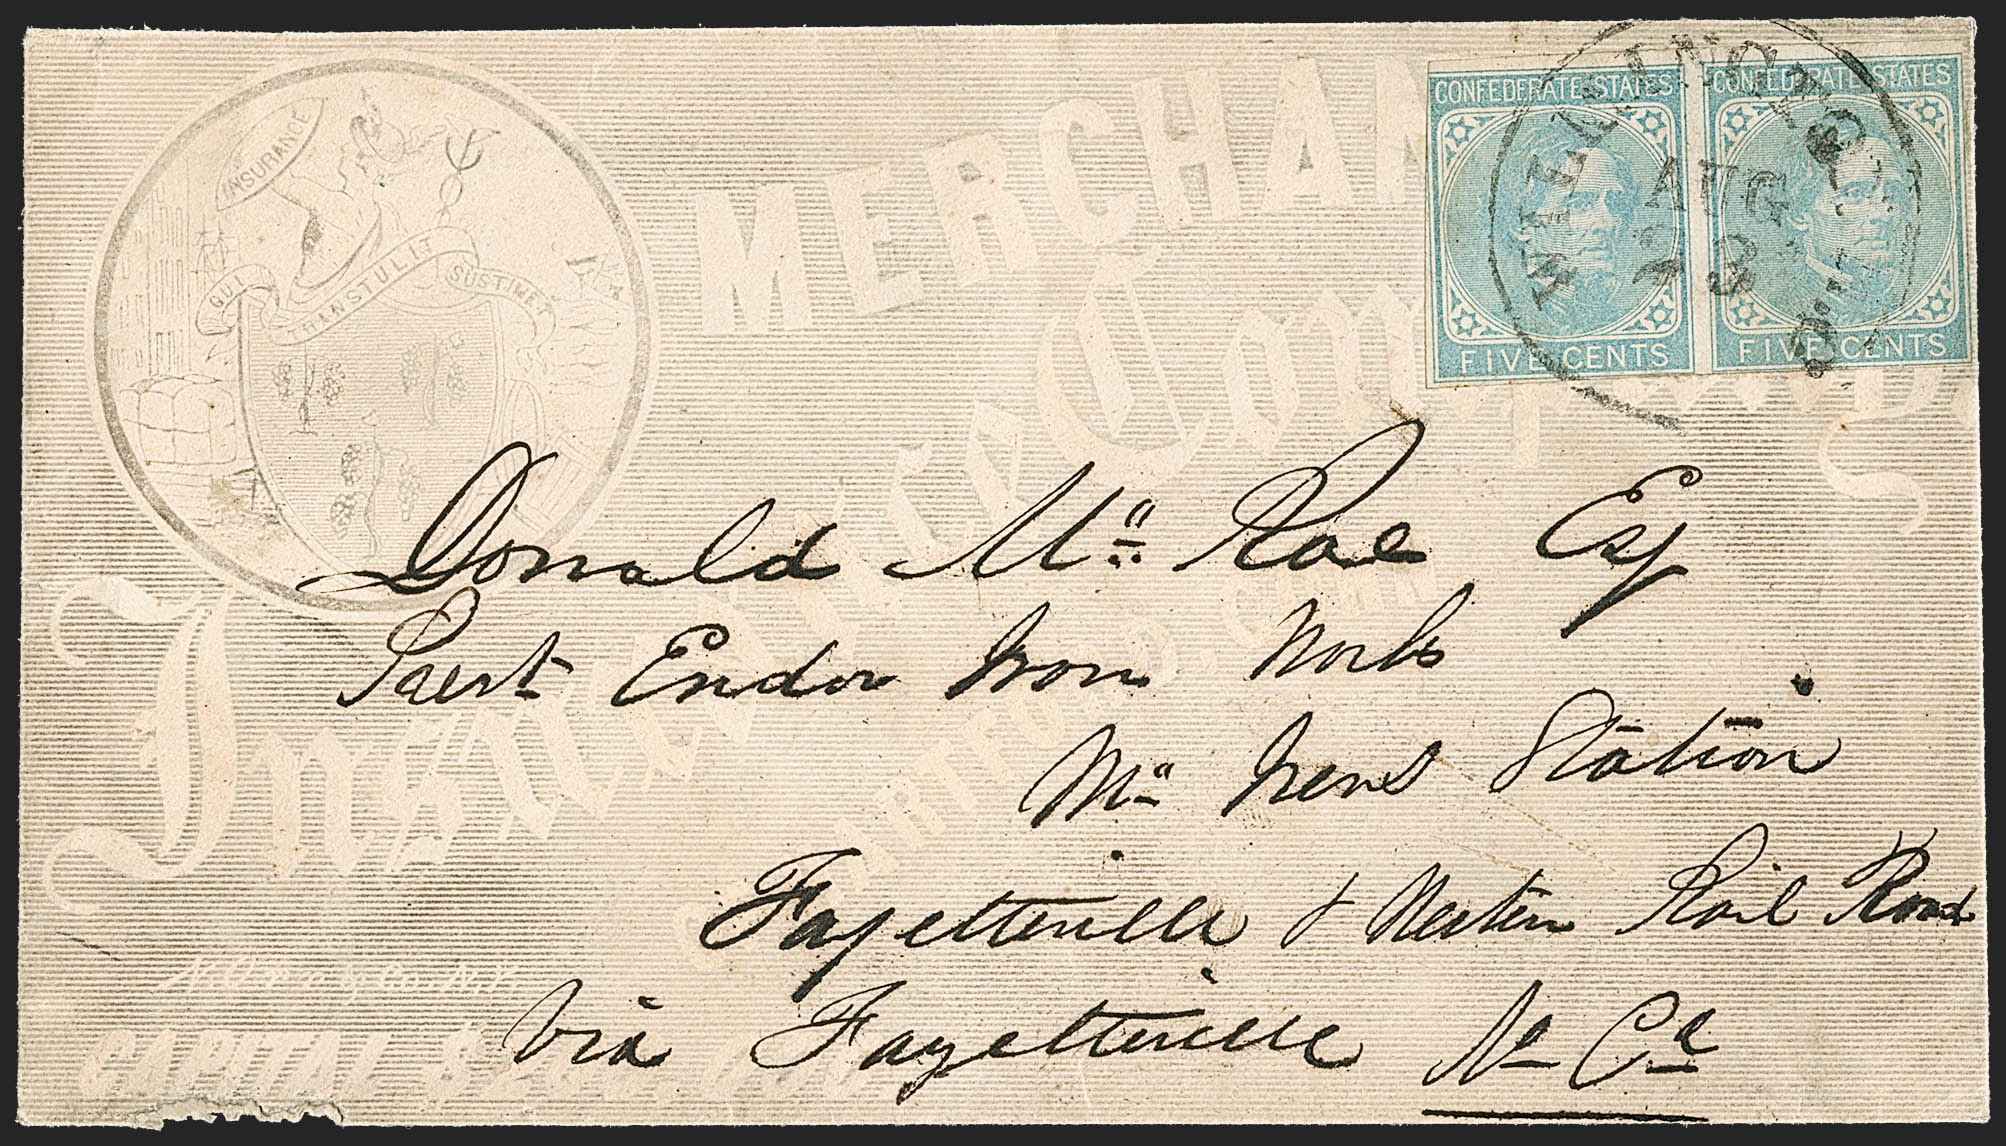 INSURANCE
QUI TRANSTULIT SUSTINET
MERCHAN
Company
Insurance
HARTFORD, CONN
CAPITAL $
CONFEDERATE STATES
FIVE CENTS
CONFEDERATE STATES
FIVE CENTS
WILMINGTON
AUG
Donald Mc Rae Esq
Prest Endor Iron Works
Mc Ivers Station
Fayetteville & Western Rail Road
Via Fayetteville No Ca